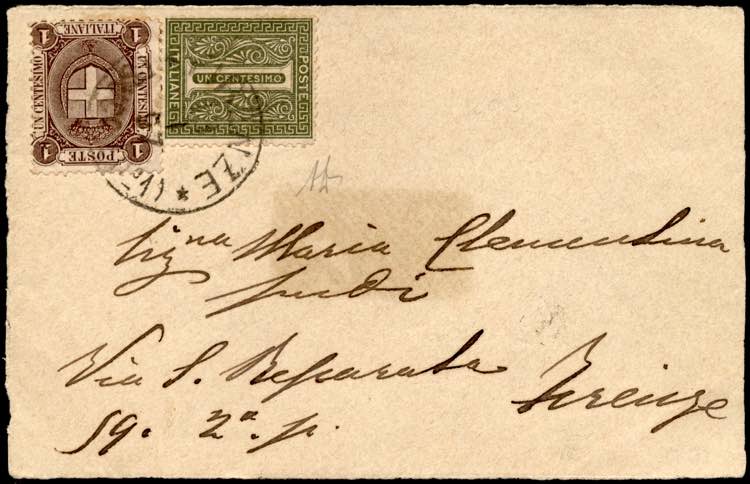 1 ITALIANE 1
UN CENTESIMO UN CENTESIMO
1 POSTE 1
ITALIANE UN CENTESIMO POSTE
Sig.na Maria Clementina
Via S. Reparata Firenze
59. 2.a p.